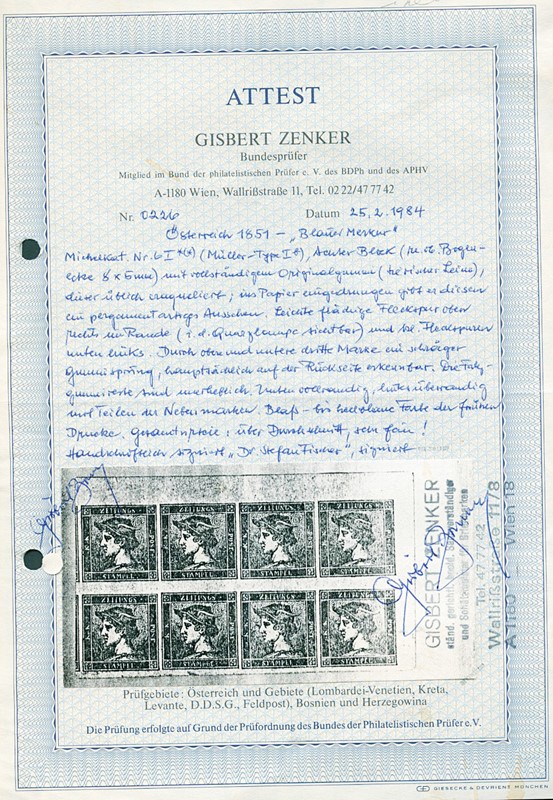 ATTEST
GISBERT ZENKER
Bundesprüfer
Mitglied im Bund der philatelistischen Prüfer e. V. des BDPh und des APHV
A-1180 Wien, Wallrißstraße 11, Tel. 02 22/47 77 42
Nr. 0226 Datum 25.2.1984
Österreich 1851 - „Blauer Merkur"
Michelkat. Nr. 6 I (Müller-Type I), Achter Block (re. ob. Bogen-
ecke 8 x 5mm) mit vollständigem Originalgummi
dieser üblich craqueliert; ins Papier eingedrungen gibt er diesem
ein pergamentartiges Aussehen. Leichte fluidige Fleckspur oben
rechts im Rande (i. d. Quarzlampe sichtbar) und kl. Fleckspuren
unten links. Durch obere und untere dritte Marke ein schräger
Gummisprung, hauptsächlich auf der Rückseite erkennbar. Die
sind unerheblich. Unten vollrandig, links überrandig
mit Teilen der Nebenmarken. Blaß- bis hellblaue Farbe der frühen
Drucke. Gesamtspreis: über Durchschnitt, sehr fein!
Handschriftlich signiert „Dr. Stefan Fischer", signiert
ZEITUNGS ZEITUNGS ZEITUNGS ZEITUNGS
STÄMPEL STÄMPEL STÄMPEL STÄMPEL
ZEITUNGS ZEITUNGS ZEITUNGS ZEITUNGS
STÄMPEL STÄMPEL STÄMPEL STÄMPEL
GISBERT ZENKER
ständ. gerichtl. Sachverständiger
und für Briefmarken
Tel. 47 77 42
Wallrißstraße 11/8
A 1180 Wien 18
Prüfgebiete: Österreich und Gebiete (Lombardei-Venetien, Kreta,
Levante, D.D.S.G., Feldpost), Bosnien und Herzegowina
Die Prüfung erfolgte auf Grund der Prüfordnung des Bundes der Philatelistischen Prüfer e.V.
GIESECKE & DEVRIENT MÜNCHEN